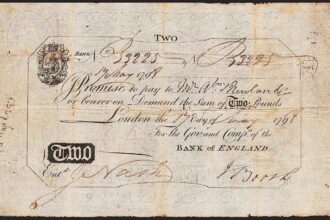 TWO
BANK No. B3225 No. B3225
17 May 1798
I Promise to pay to Mr. Abm. Newland
or bearer on Demand the Sum of Two Pounds
London the 17 Day of May 1798
For the Gov. and Comp. of the
BANK of ENGLAND.
TWO
Entd. J Nash
J Booth